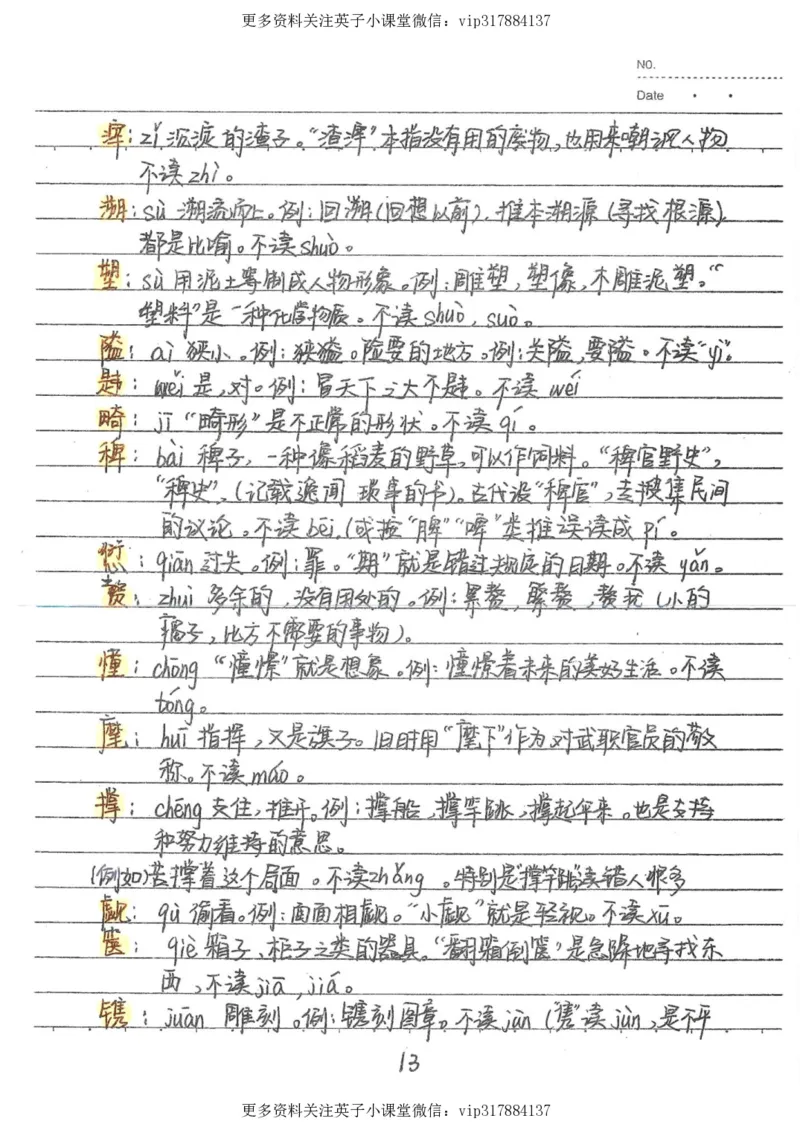 更多资料关注英子小课堂微信：vip317884137
NO.
Date
滓：zǐ 沉淀的渣子。“渣滓”本指没有用的废物，也用来嘲讽人物
不读zhǐ。
溯：sù 溯流而上。例：回溯（回想以前），推本溯源（寻找根源），
都是比喻。不读shuò。
塑：sù 用泥土等制成人物形象。例：雕塑，塑像，木雕泥塑。“
塑料”是一种化学物质。不读shuò，suò。
隘：ài 狭小。例：狭隘。险要的地方。例：关隘，要隘。不读“yì”。
韪：wěi 是，对。例：冒天下之大不韪。不读wéi
畸：jī “畸形”是不正常的形状。不读qí。
稗：bài 稗子，一种像稻麦的野草，可以作饲料。“稗官野史”，
“稗史”，（记载逸闻琐事的书）。古代设“稗官”，去搜集民间
的议论。不读bēi，（或按“脾”“啤”类推误读成pí。
愆：qiān 过失。例：罪。“期”就是错过规定的日期。不读yǎn。
赘：zhuì 多余的，没有用处的。例：累赘，繁赘，赘疣（小的
瘊子，比方不需要的事物）。
憧：chōng “憧憬”就是想象。例：憧憬着未来的美好生活。不读
tóng。
麾：huī 指挥，又是旗子。旧时用“麾下”作为对武职官员的敬
称。不读máo。
撑：chēng 支住，推开。例：撑船，撑竿跳，撑起伞来。也是支持
和努力维持的意思。
（例如）苦撑着这个局面。不读zhǎng。特别是“撑竿跳”读错人很多
觑：qù 偷看。例：面面相觑。“小觑”就是轻视。不读xū。
箧：qiè 箱子、柜子之类的器具。“翻箱倒箧”是急降地寻找东
西，不读jiā，jiá。
镌：juān 雕刻。例：镌刻图章。不读jùn（“隽”读jùn，是不平
13
更多资料关注英子小课堂微信：vip317884137